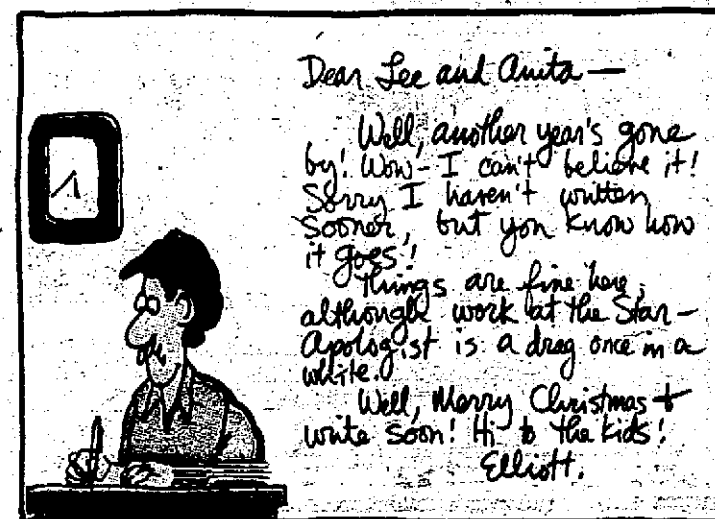 Dear Lee and Anita —
Well, another year's gone
by! Wow - I can't believe it!
Sorry I haven't written
sooner, but you know how
it goes!
Things are fine here,
although work at the Star-
Apologist is a drag once in a
while.
Well, Merry Christmas &
write soon! Hi to the kids!
Elliott.